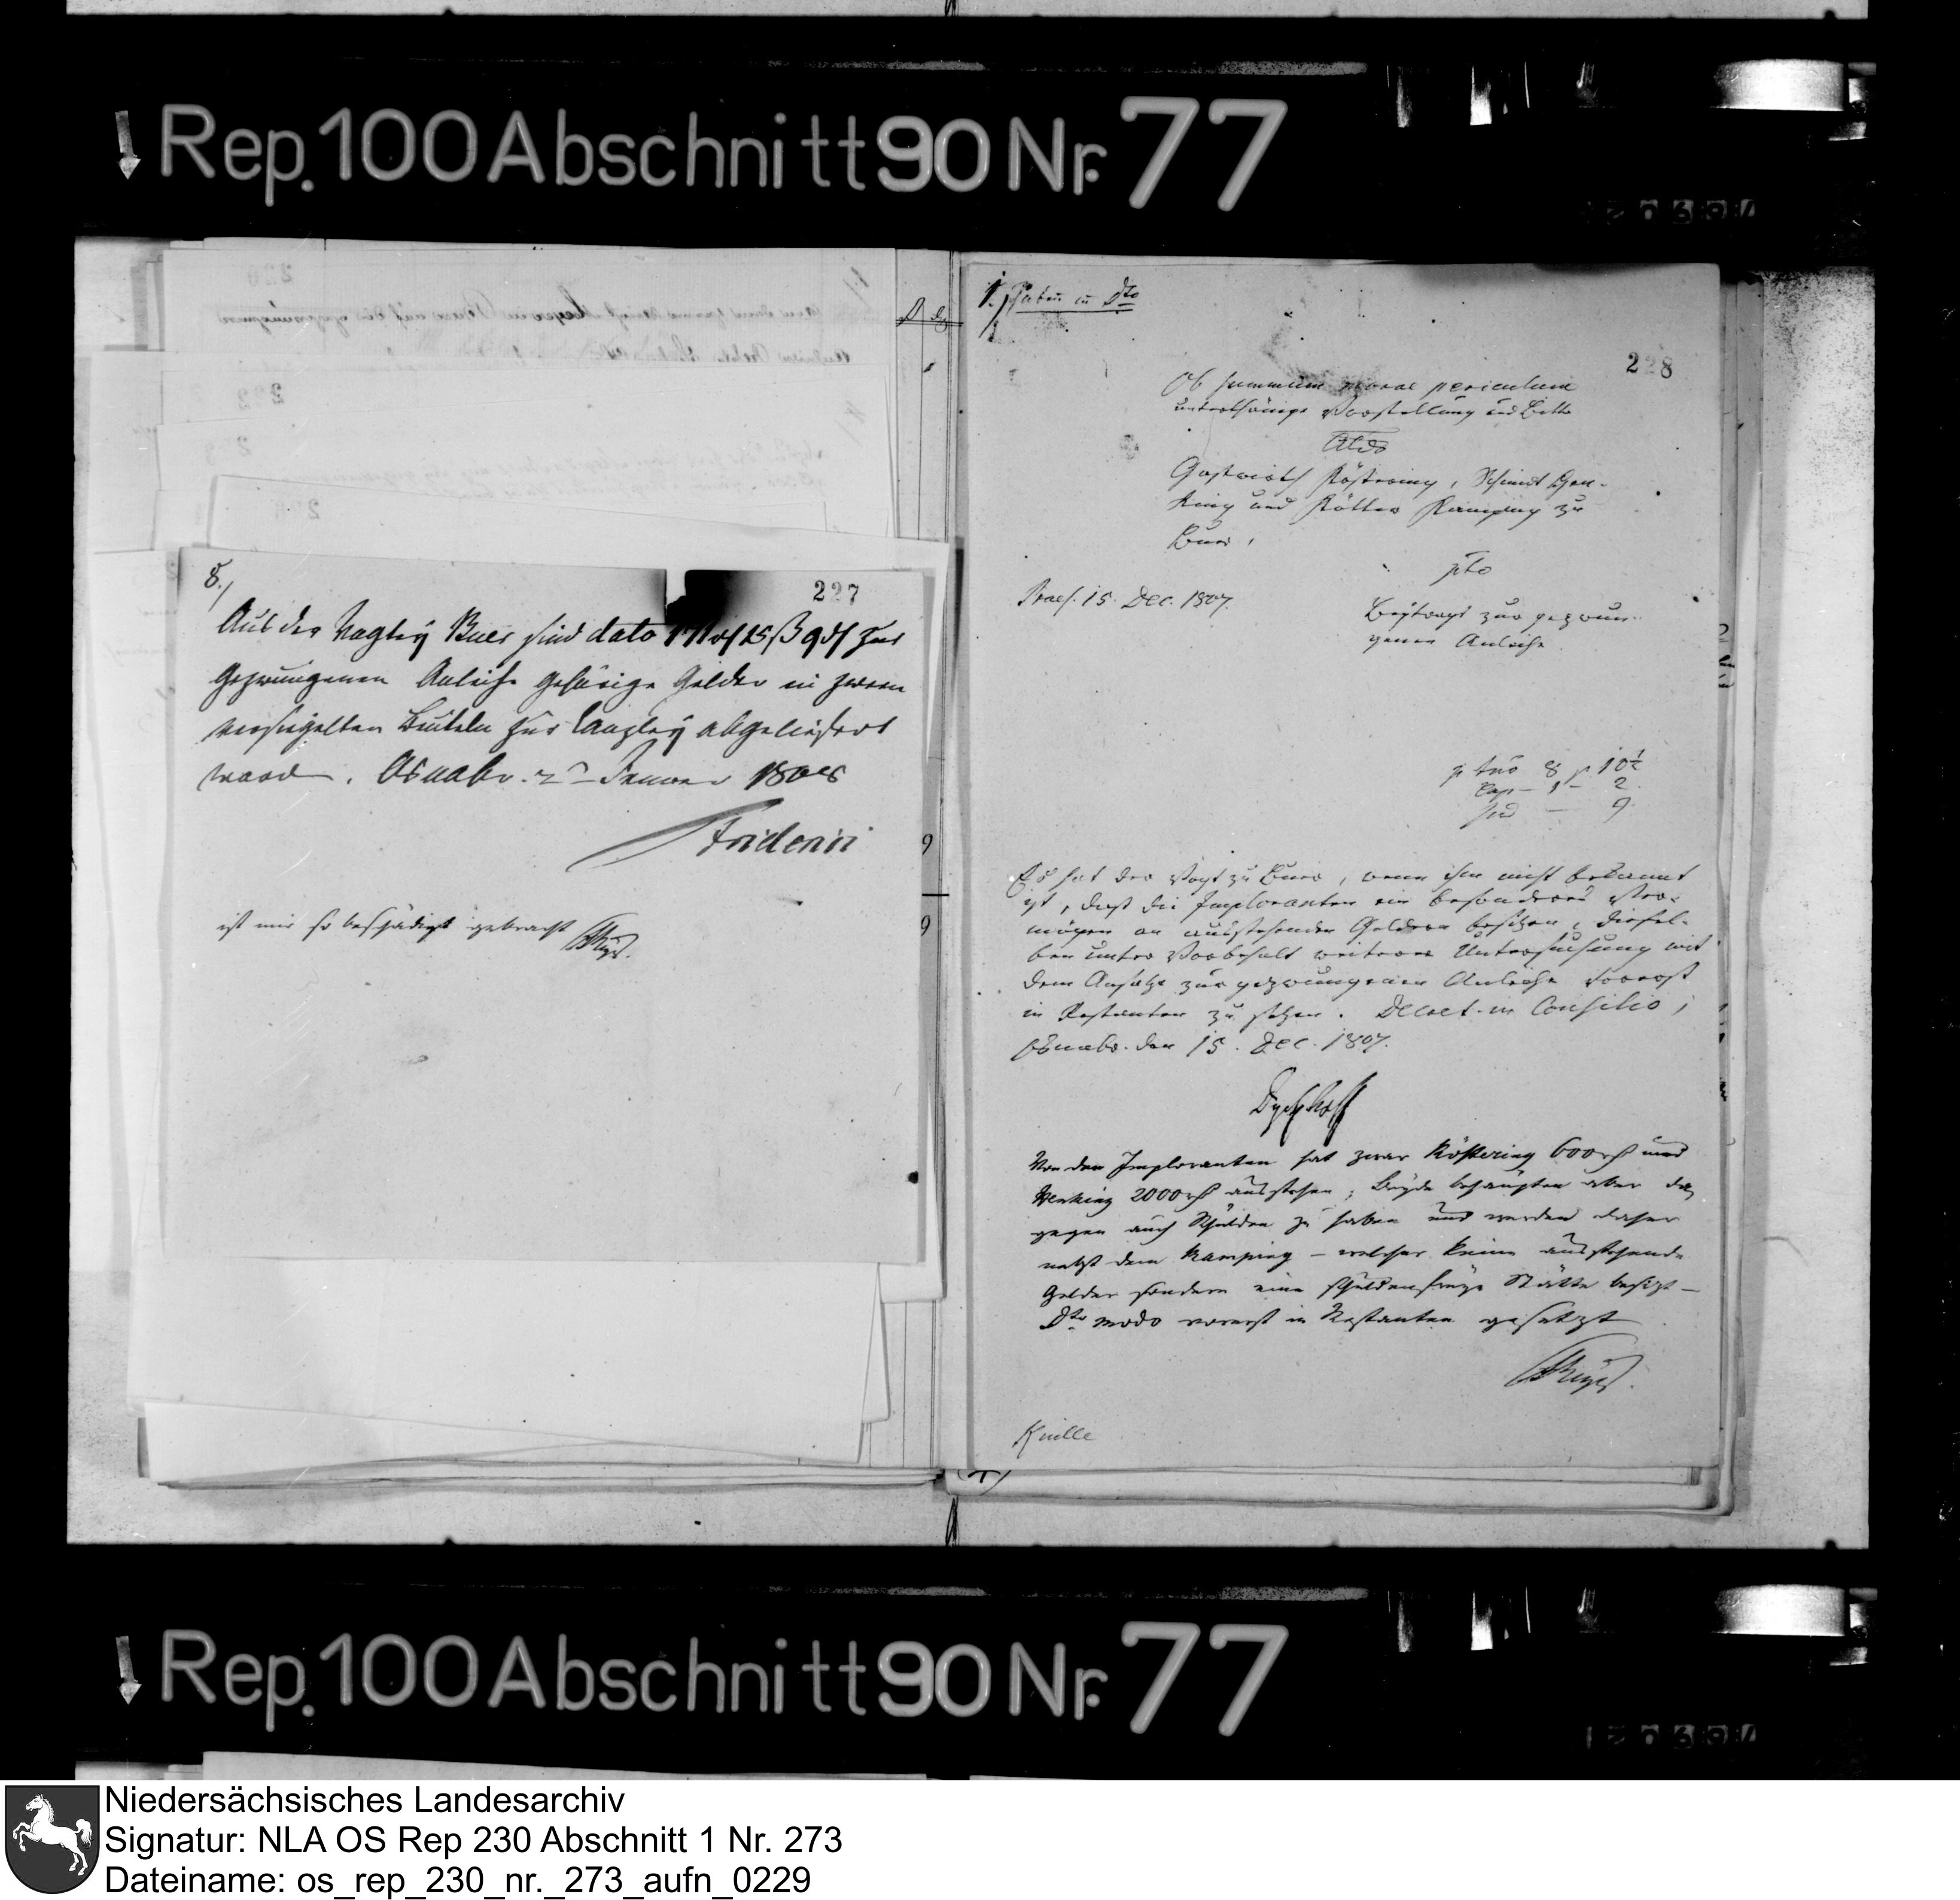 Rep. 100 Abschnitt 90 Nr. 77
8./
227
Aus der Vogtey Buer sind dato 171 rf 15 ß 9 df zur
gezwungenen Anleihe gehörige Gelder in zween
versiegelten Beuteln zur Canzley abgeliefert
worden. Osnabr. 2 Januar 1808
Friderici
ist mir so beschädigt gebracht
228
Ob summum morae periculum
unterthänige Vorstellung und Bitte
Gastwirth Köstering, Schmit Hen-
king und Kötter Kamping zu
Buer,
pto
Beytrags zur gezwun-
genen Anleihe
Praes. 15. Dec. 1807.
8 10½
1 - 2
9
Es hat der Vogt zu Buer, wenn ihm nicht bekannt
ist, daß die Imploranten ein besonderes Ver-
mögen an ausstehenden Geldern besitzen, diesel-
ben unter Vorbehalt weiterer Untersuchung mit
dem Ansatze zur gezwungenen Anleihe vorerst
in Restanten zu setzen. Decret. in Consilio,
Osnabr. den 15. Dec. 1807.
Dyckhoff
Von den Imploranten hat zwar Köstering 600 rf und
Henking 2000 rf ausstehen; Beyde behaupten aber da
gegen auch Schulden zu haben und werden daher
nebst dem Kamping - welcher keine ausstehende
Gelder sondern eine schuldenfreye Stätte besitzt -
modo vorerst in Restanten gesetzt
Knille
Rep. 100 Abschnitt 90 Nr. 77
Niedersächsisches Landesarchiv
Signatur: NLA OS Rep 230 Abschnitt 1 Nr. 273
Dateiname: os_rep_230_nr._273_aufn_0229